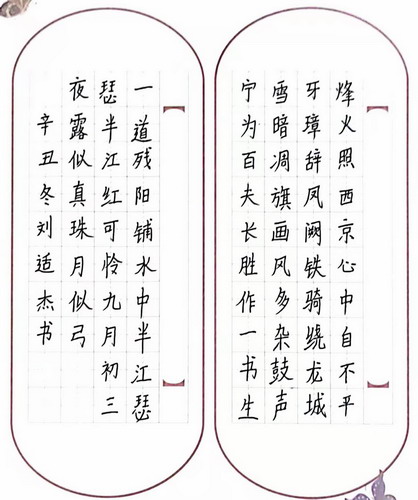 烽火照西京心中自不平
牙璋辞凤阙铁骑绕龙城
雪暗凋旗画风多杂鼓声
宁为百夫长胜作一书生
一道残阳铺水中半江瑟
瑟半江红可怜九月初三
夜露似真珠月似弓
辛丑冬刘适杰书